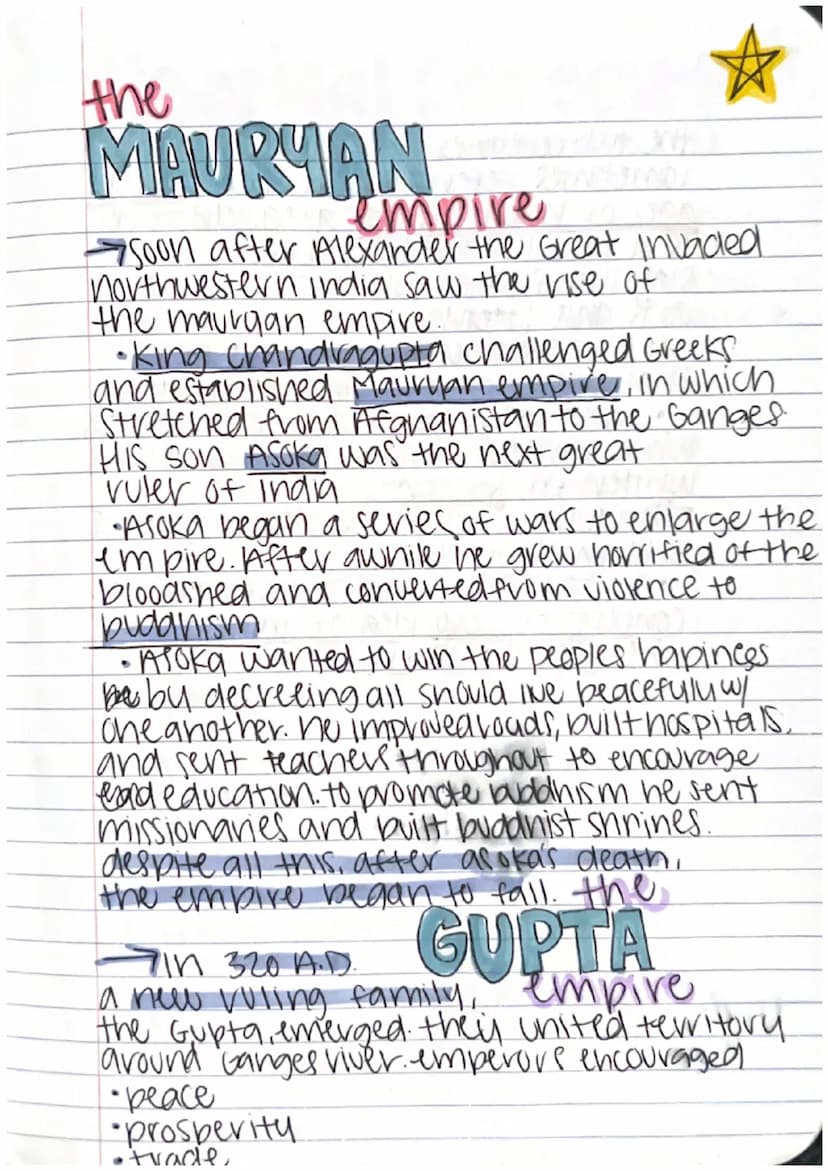 the
MAURYAN
empire
→ soon after Alexander the Great invaded
northwestern india saw the rise of
the mauryan empire.
• King Chandragupta challenged Greeks
and established Mauryan empire, in which
stretched from Afghanistan to the Ganges.
His son Asoka was the next great
ruler of india
• Asoka began a series of wars to enlarge the
empire. After awhile he grew horrified of the
bloodshed and converted from violence to
buddhism
• Asoka wanted to win the peoples hapiness
by decreeing all should live peacefully w/
one another. he improved roads, built hospitals,
and sent teachers throughout to encourage
education. to promote buddhism he sent
missionaries and built buddhist shrines.
despite all this, after asoka's death,
the empire began to fall.
the
GUPTA
empire
→ in 320 A.D.
a new ruling family,
the Gupta, emerged. their united territory
around Ganges river. emperors encouraged
• peace
• prosperity
• trade